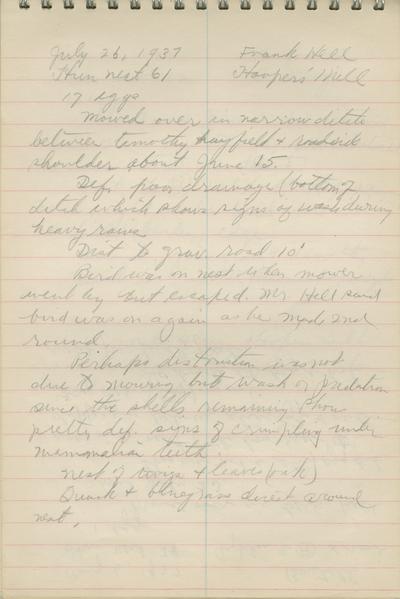 July 26, 1937 Frank Hell
Hun nest 61 Harpers' Mill
17 eggs
Mowed over in narrow ditch
between timothy hayfield & roadside
shoulder about June 15.
Def. poor drainage (bottom of
ditch which shows signs of wash during
heavy rains
Dist to grav. road 10'
Bird was on nest when mower
went by but escaped. Mr Hell said
bird was on again as he made 2nd
round.
Perhaps destruction was not
due to mowing but wash or predation
since the shells remaining show
pretty def. signs of crimpling under
mammalian teeth.
Nest of twigs & leaves (oak)
Quack & bluegrass direct around
nest.